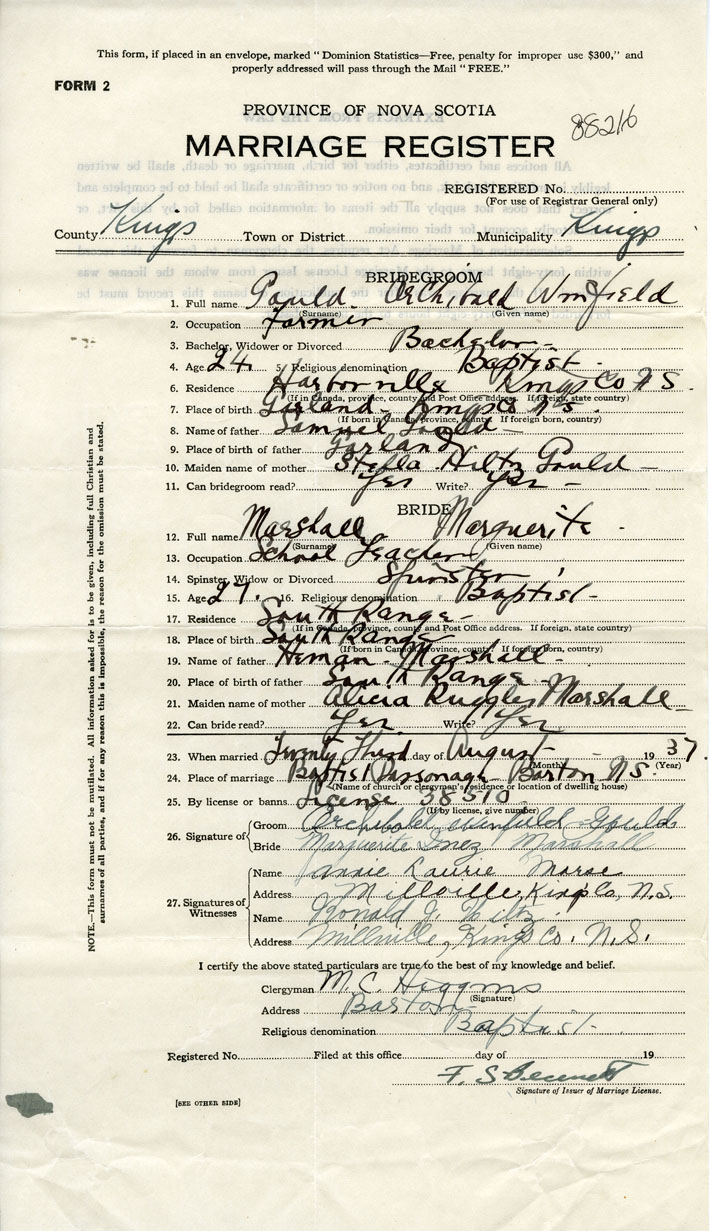 This form, if placed in an envelope, marked "Dominion Statistics—Free, penalty for improper use $300," and
properly addressed will pass through the Mail "FREE."
FORM 2
PROVINCE OF NOVA SCOTIA
88216
MARRIAGE REGISTER
REGISTERED No.
(For use of Registrar General only)
County Kings Town or District Municipality Kings
BRIDEGROOM
1. Full name Gould Archibald Winfield
(Surname) (Given name)
2. Occupation Farmer
3. Bachelor, Widower or Divorced Bachelor
4. Age 24 5. Religious denomination Baptist
6. Residence Harborville Kings Co N S.
(If in Canada, province, county and Post Office address. If foreign, state country)
7. Place of birth Garland Kings Co N S.
(If born in Canada, province, county. If foreign born, country)
8. Name of father Samuel Gould
9. Place of birth of father Garland
10. Maiden name of mother Stella Hiltz Gould
11. Can bridegroom read? Yes Write? Yes
BRIDE
12. Full name Marshall Marguerite
(Surname) (Given name)
13. Occupation School Teacher
14. Spinster, Widow or Divorced Spinster
15. Age 27. 16. Religious denomination Baptist
17. Residence South Range
(If in Canada, province, county and Post Office address. If foreign, state country)
18. Place of birth South Range
(If born in Canada, province, county. If foreign born, country)
19. Name of father Heman Marshall
20. Place of birth of father South Range
21. Maiden name of mother Alicia Ruggles Marshall
22. Can bride read? Yes Write? Yes
23. When married Twenty Third day of August 1937.
(Month) (Year)
24. Place of marriage Baptist Parsonage Barton N S.
(Name of church or clergyman's residence or location of dwelling house)
25. By license or banns License 38510
(If by license, give number)
26. Signature of Groom Archibald Winfield Gould
Bride Marguerite Inez Marshall
27. Signatures of Witnesses Name Annie Laurie Morse
Address Millville, Kings Co, N.S.
Name Ronald J. Hiltz
Address Millville, Kings Co. N.S.
I certify the above stated particulars are true to the best of my knowledge and belief.
Clergyman M.C. Higgins
(Signature)
Address Barton
Religious denomination Baptist
Registered No. Filed at this office day of 19
F. S. Bennett
Signature of Issuer of Marriage License.
[SEE OTHER SIDE]
NOTE.—This form must not be mutilated. All information asked for is to be given, including full Christian and
surnames of all parties, and if for any reason this is impossible, the reason for the omission must be stated.